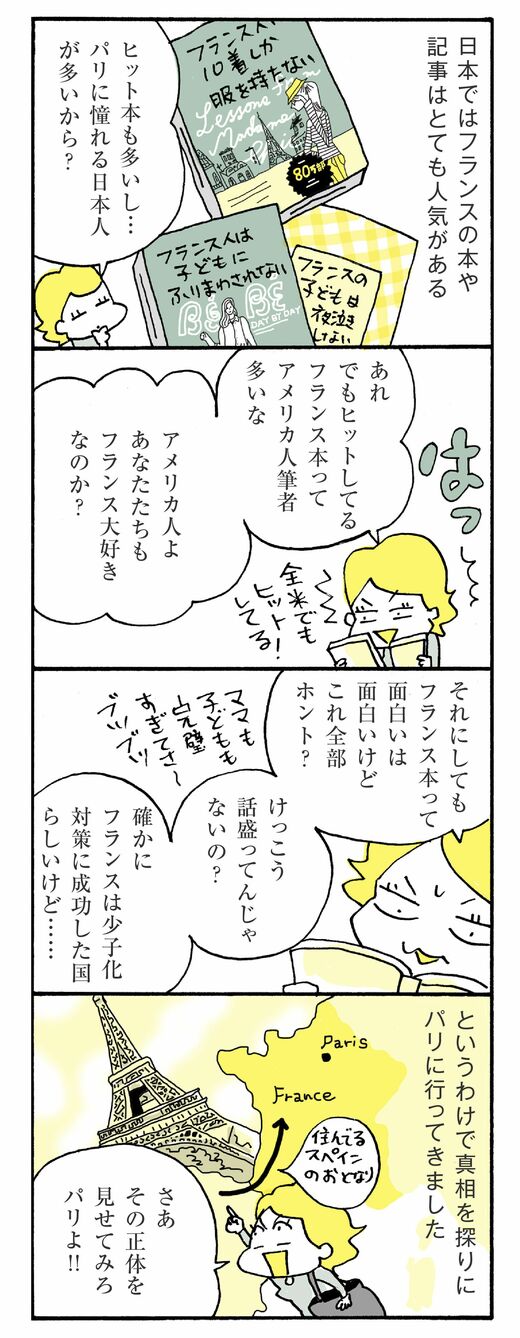 日本ではフランスの本や
記事はとても人気がある
フランス人は
10着しか
服を持たない
Lessons from
Madame
80万部
フランス人は
子どもに
ふりまわされない
BÉBÉ
DAY BY DAY
フランスの
子どもは
夜泣き
しない
ヒット本も多いし…
パリに憧れる日本人
が多いから?
はっ
あれ
でもヒットしてる
フランス本って
アメリカ人筆者
多いな
全米でも
ヒット!
してる!
アメリカ人よ
あなたたちも
フランス大好き
なのか?
それにしても
フランス本って
面白いは
面白いけど
これ全部
ホント?
ママも
子どもも
完璧
すぎてさ〜
ブツブツ
けっこう
話盛ってんじゃ
ないの?
確かに
フランスは少子化
対策に成功した国
らしいけど……
というわけで真相を探りに
パリに行ってきました
Paris
France
住んでる
スペイン
のおとなり
さあ
その正体を
見せてみろ
パリよ!!